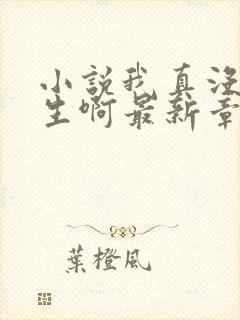 小說我真沒
生啊最新章
葉橙風